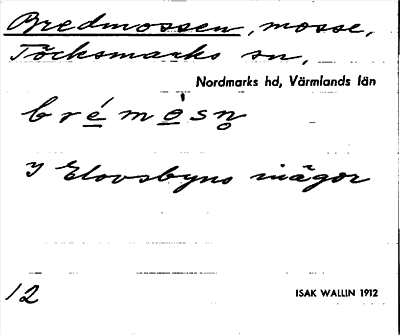 Bredmossen, mosse,
Töcksmarks sn,
Nordmarks hd, Värmlands län
brémòsn
y Elovsbyns inägor
12
ISAK WALLIN 1912